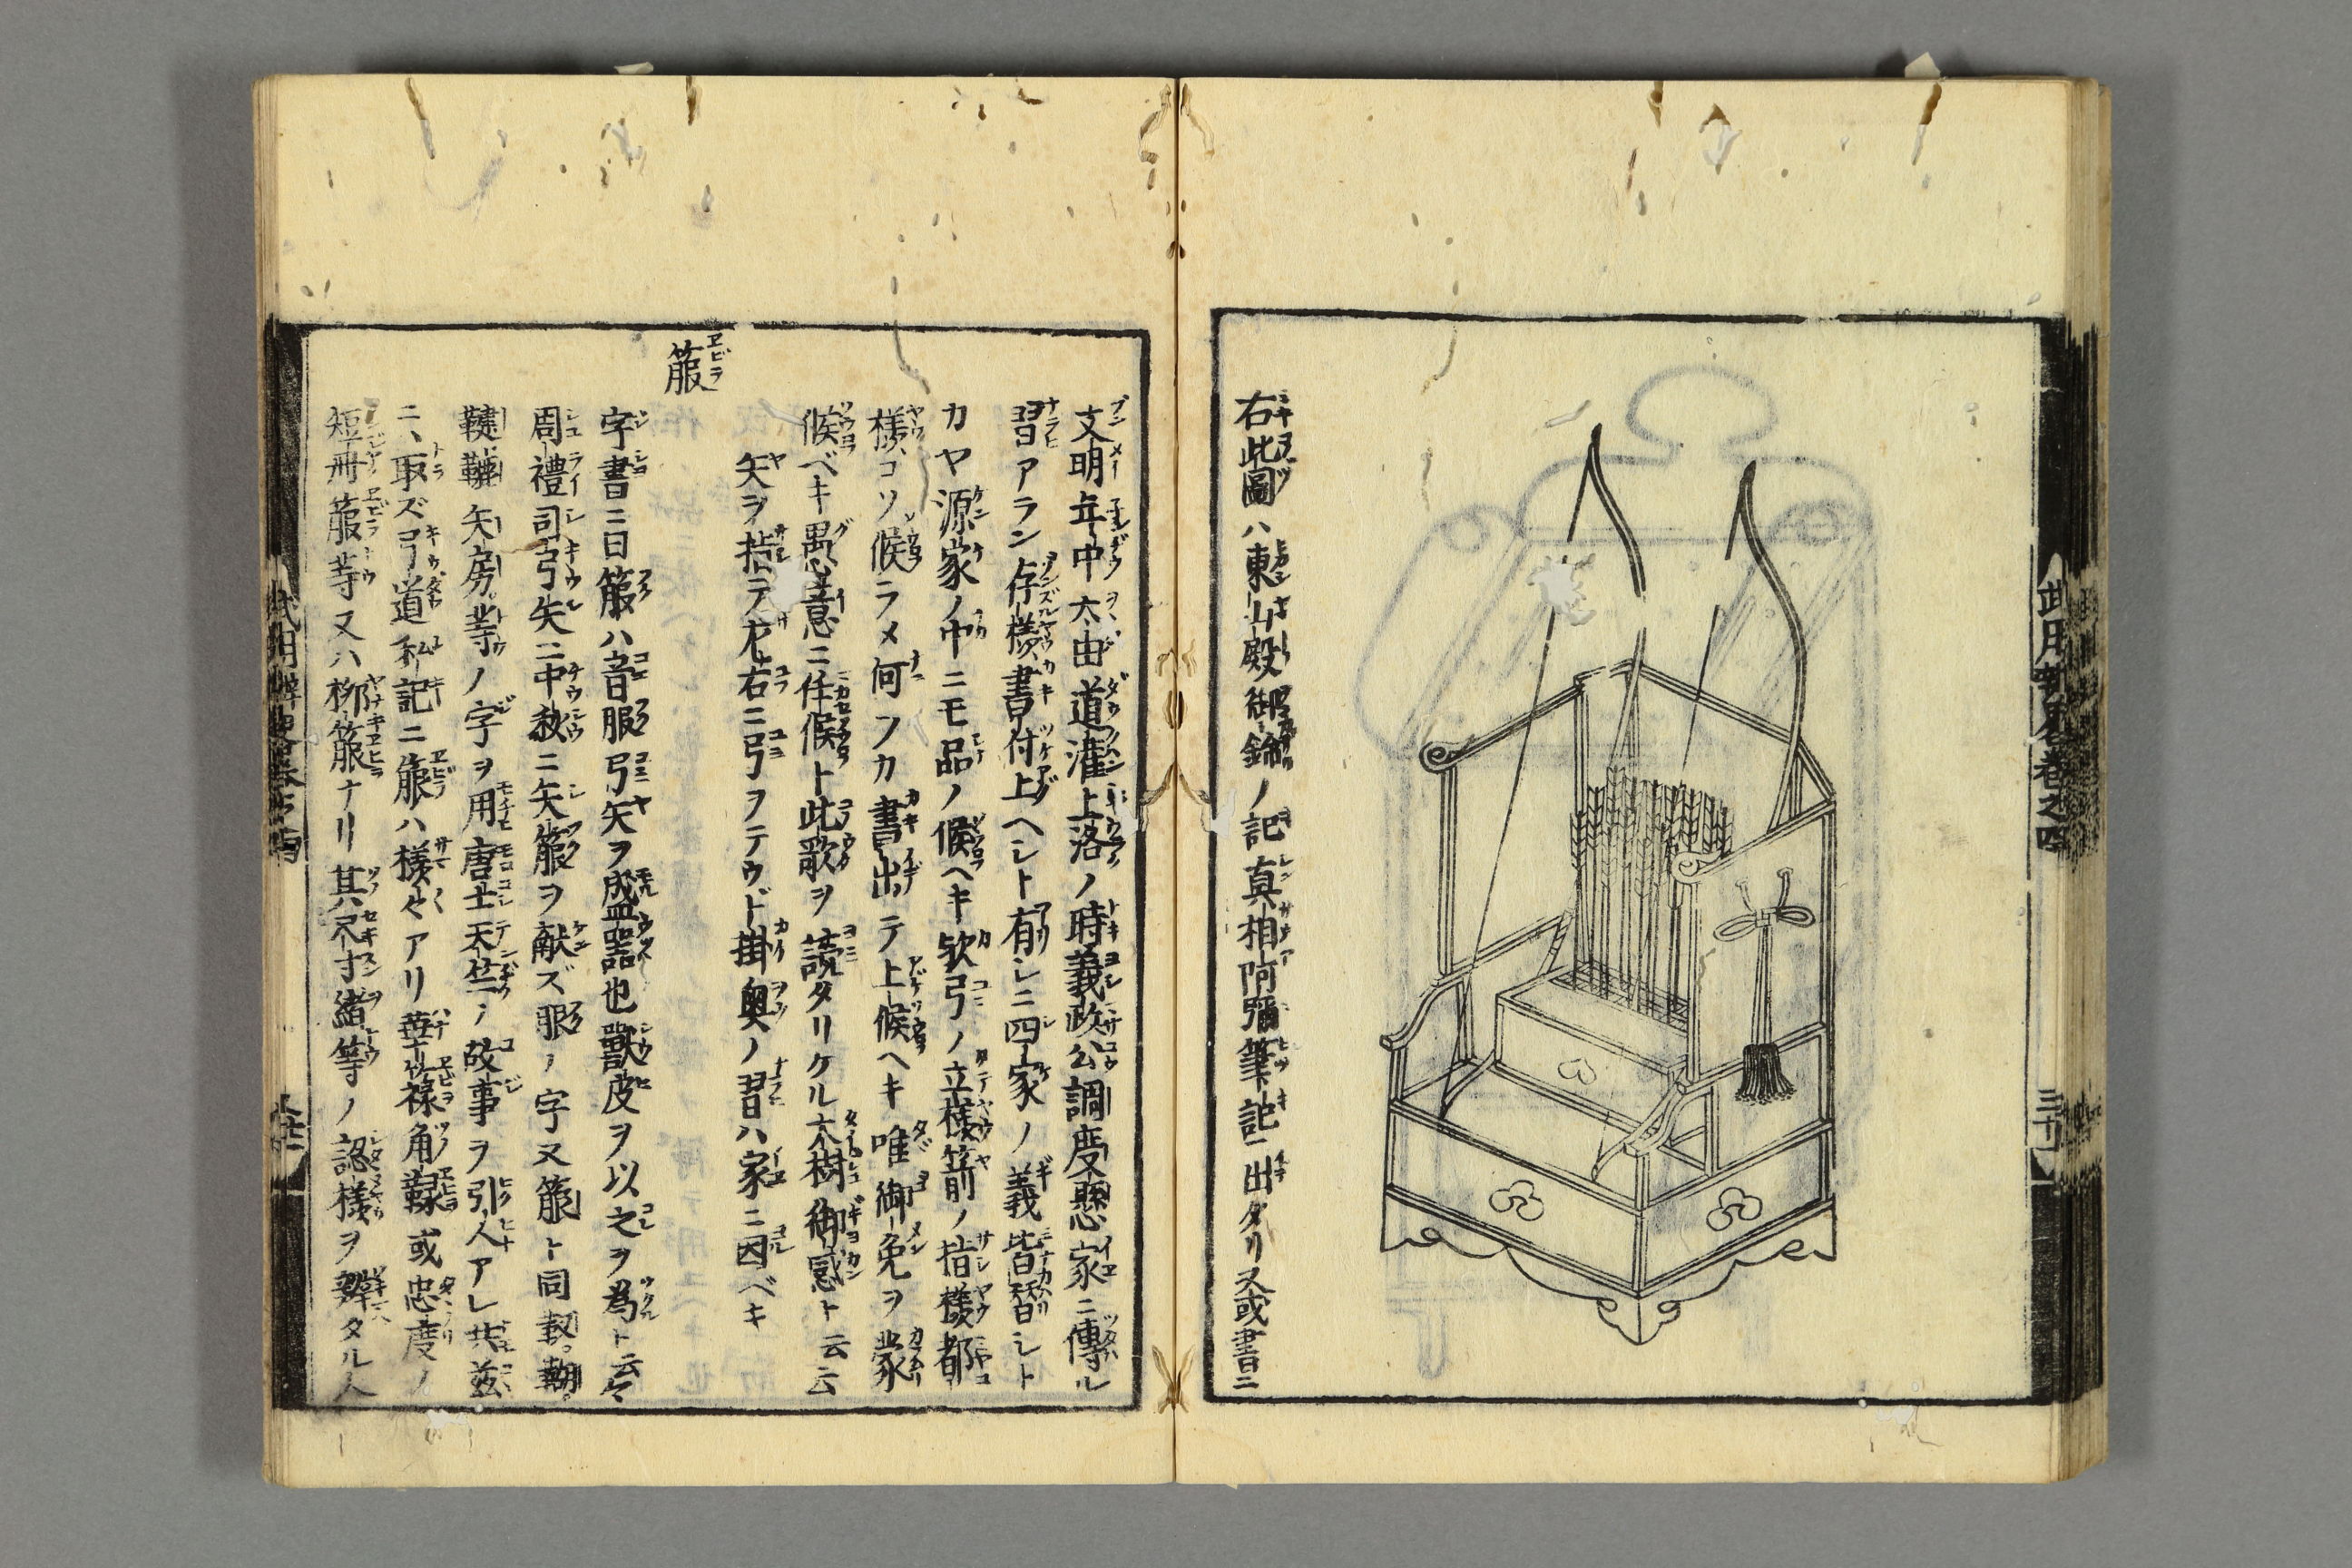 武用辨畧巻之四
右此圖ハ東山殿御錺ノ記真相阿彌筆記ニ出タリ又或書ニ
文明年中太田道灌上洛ノ時義政公調度懸家ニ傳ル
習アラン存様書付上ヘシト有シニ四家ノ義皆替シト
カヤ源家ノ中ニモ品ノ候ヘキ欤弓ノ立様箭ノ指様都
様コソ候ラメ何フカ書出テ上候ヘキ唯御免ヲ蒙
候ベキ愚意ニ任候ト此歌ヲ読タリケル大樹御感ト云云
矢ヲ指テ左右ニ弓ヲテウド掛奥ノ習ハ家ニ因ベキ
箙
字書ニ曰箙ハ音服弓矢ヲ盛器也獣皮ヲ以之ヲ為ト云々
周禮司弓矢ニ中秋ニ矢箙ヲ献ズ服ノ字又箙ト同
矢房等ノ字ヲ用唐土天竺ノ故事ヲ引人アレ共茲
ニハ取ズ弓道私記ニ箙ハ様々アリ角或忠度ノ
短冊箙等又ハ柳箙ナリ其尺寸緒等ノ認様ヲ辨タル人